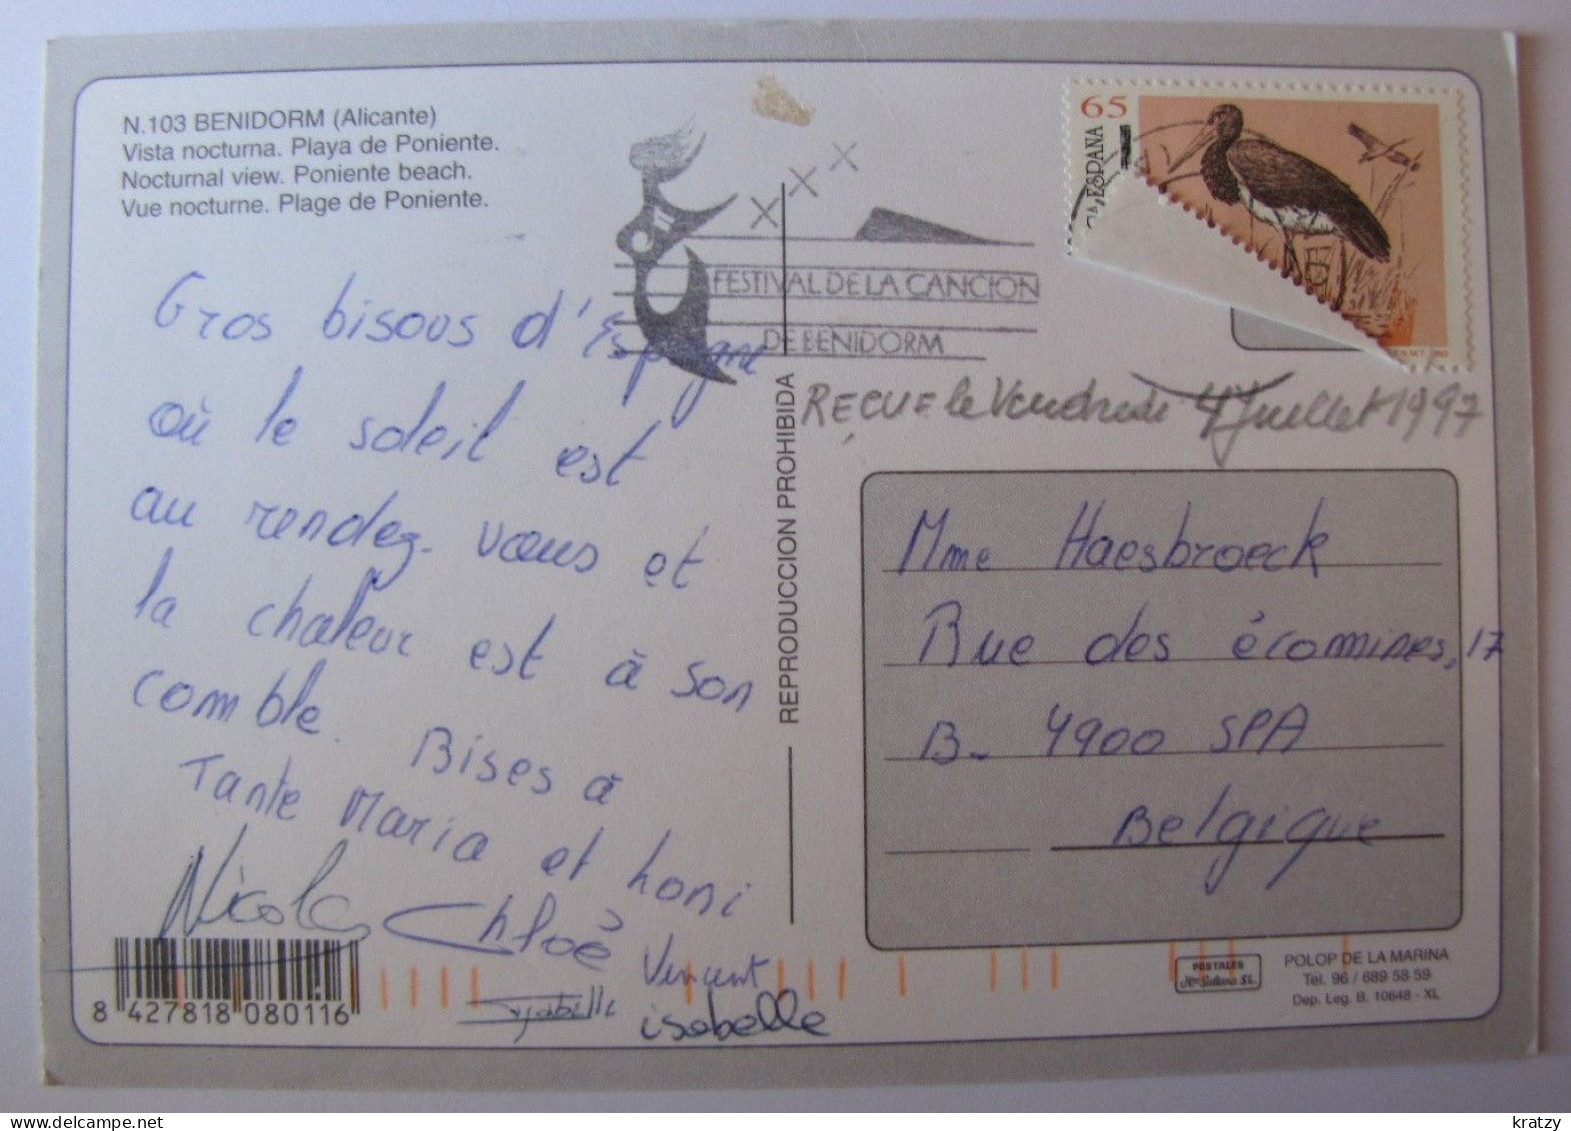 N.103 BENIDORM (Alicante)
Vista nocturna. Playa de Poniente.
Nocturnal view. Poniente beach.
Vue nocturne. Plage de Poniente.
65
ESPAÑA
FESTIVAL DE LA CANCION
DE BENIDORM
Gros bisous d'Espagne
où le soleil est
au rendez-vous et
la chaleur est à son
comble. Bises à
Tante Maria et honi
Nicolas Chloë
Vincent
isabelle
REPRODUCCION PROHIBIDA
REÇUE le Vendredi 4 Juillet 1997
Mme Haesbroeck
Rue des écomines, 17
B- 4900 SPA
Belgique
8 427818 080116
POSTALES
POLOP DE LA MARINA
Tel. 96 / 689 58 59
Dep. Leg. B. 10648 - XL
kratzy